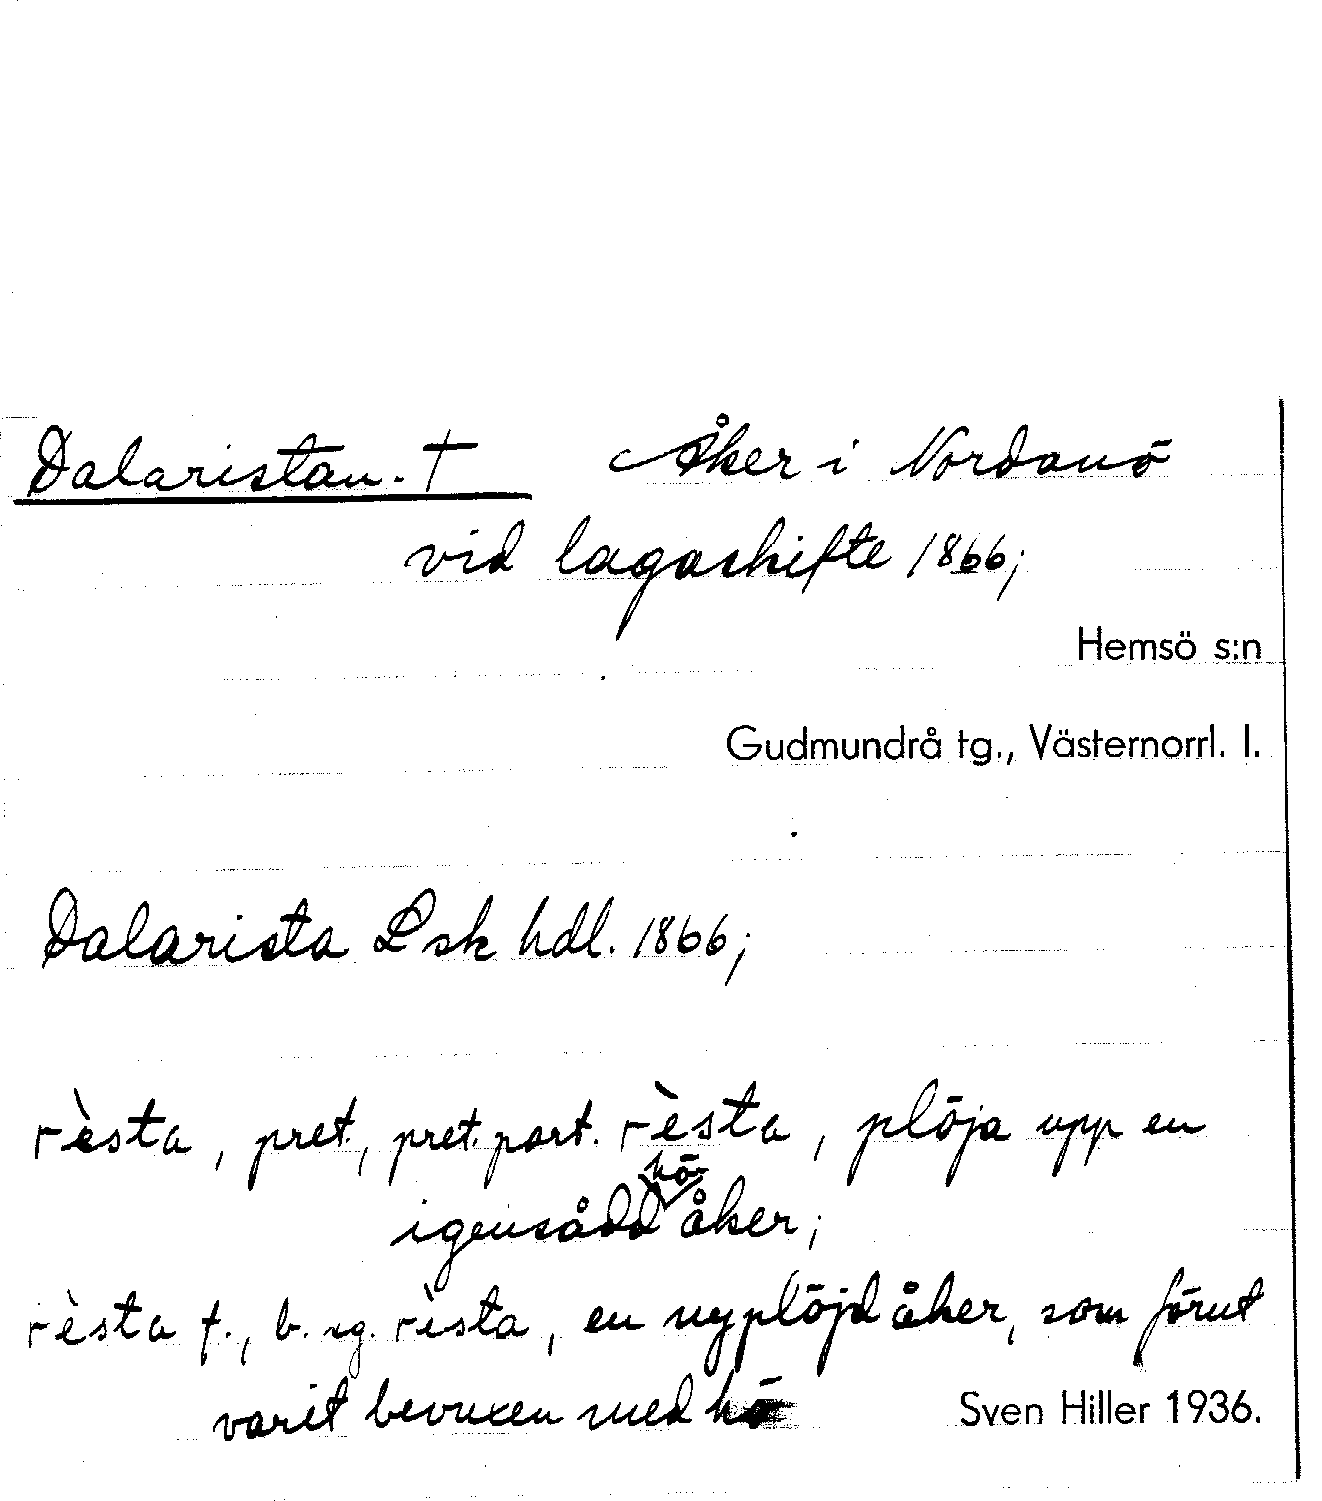 Dalaristan. † Åker i Nordanö
vid lagaskifte 1866;
Hemsö s:n
Gudmundrå tg., Västernorrl. l.
Dalarista Lsk hdl. 1866;
rèsta, pret., pret.part. rèsta, plöja upp en
igensådd hö-åker;
rèsta f., b. sg. rèsta, en nyplöjd åker, som förut
varit bevuxen med hö
Sven Hiller 1936.